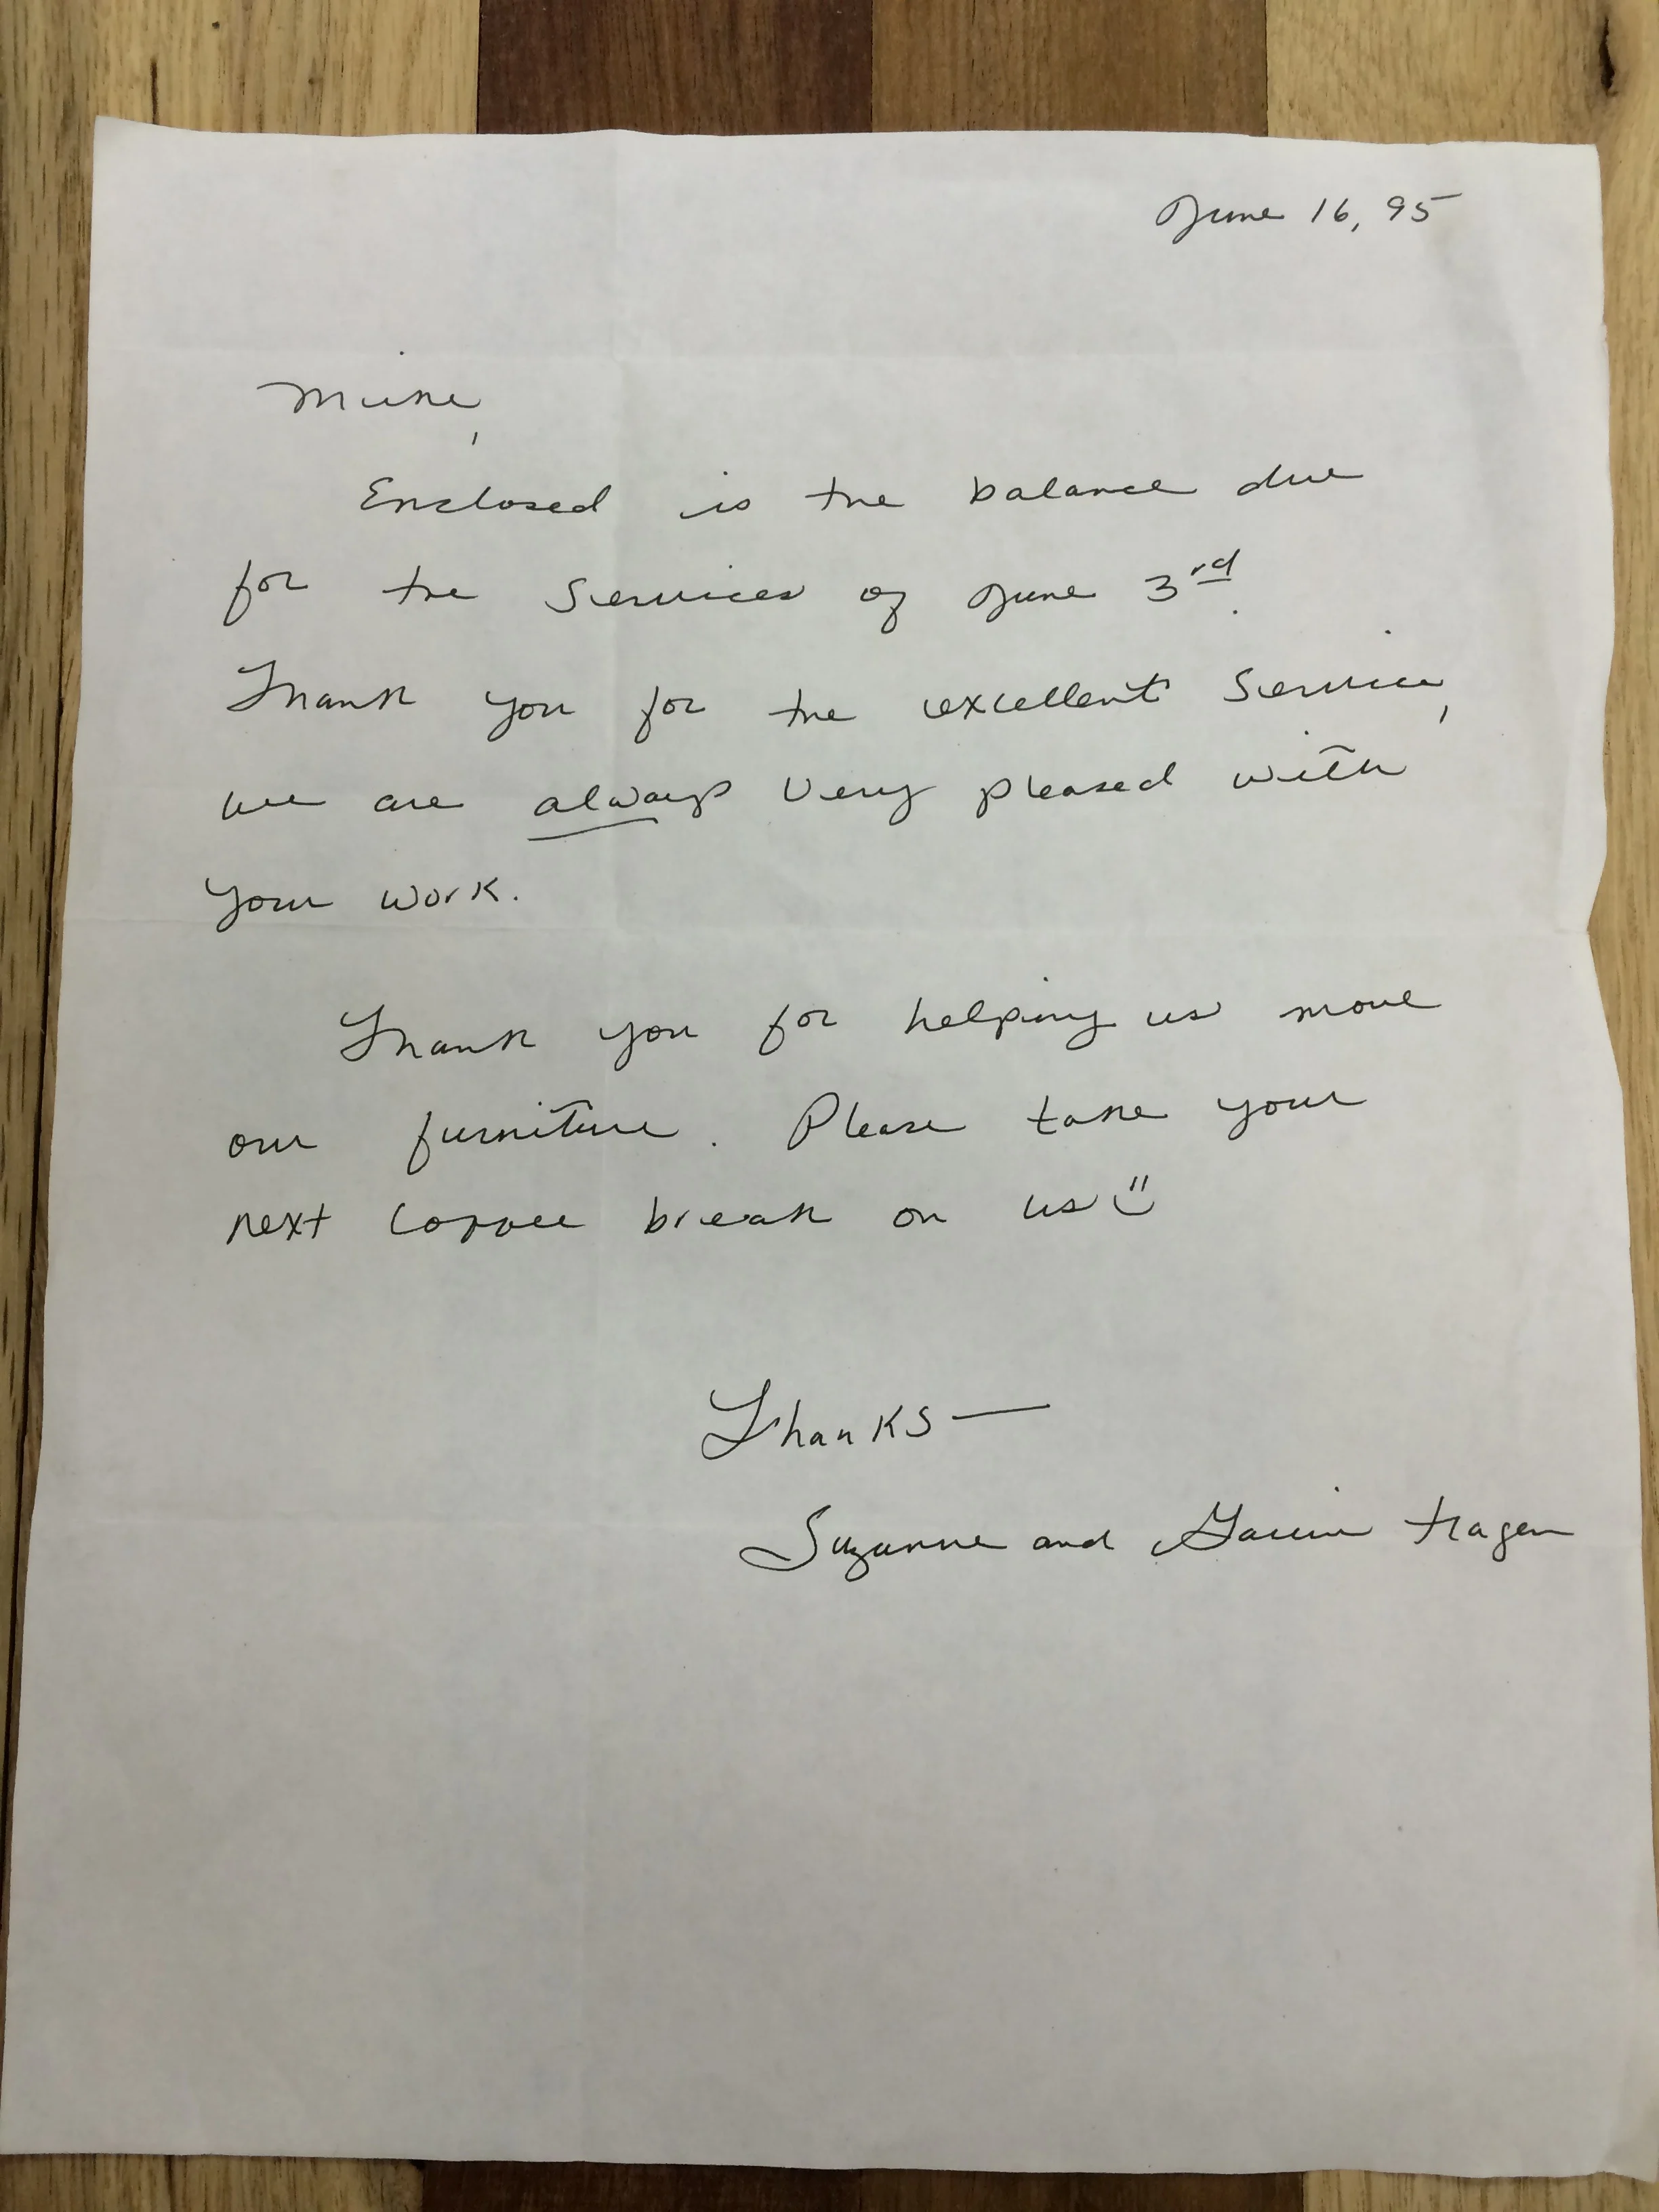 June 16, 95
Mike,
Enclosed is the balance due
for the services of June 3rd.
Thank you for the excellent service,
we are always very pleased with
your work.
Thank you for helping us move
our furniture. Please take your
next coffee break on us
Thanks—
Suzanne and